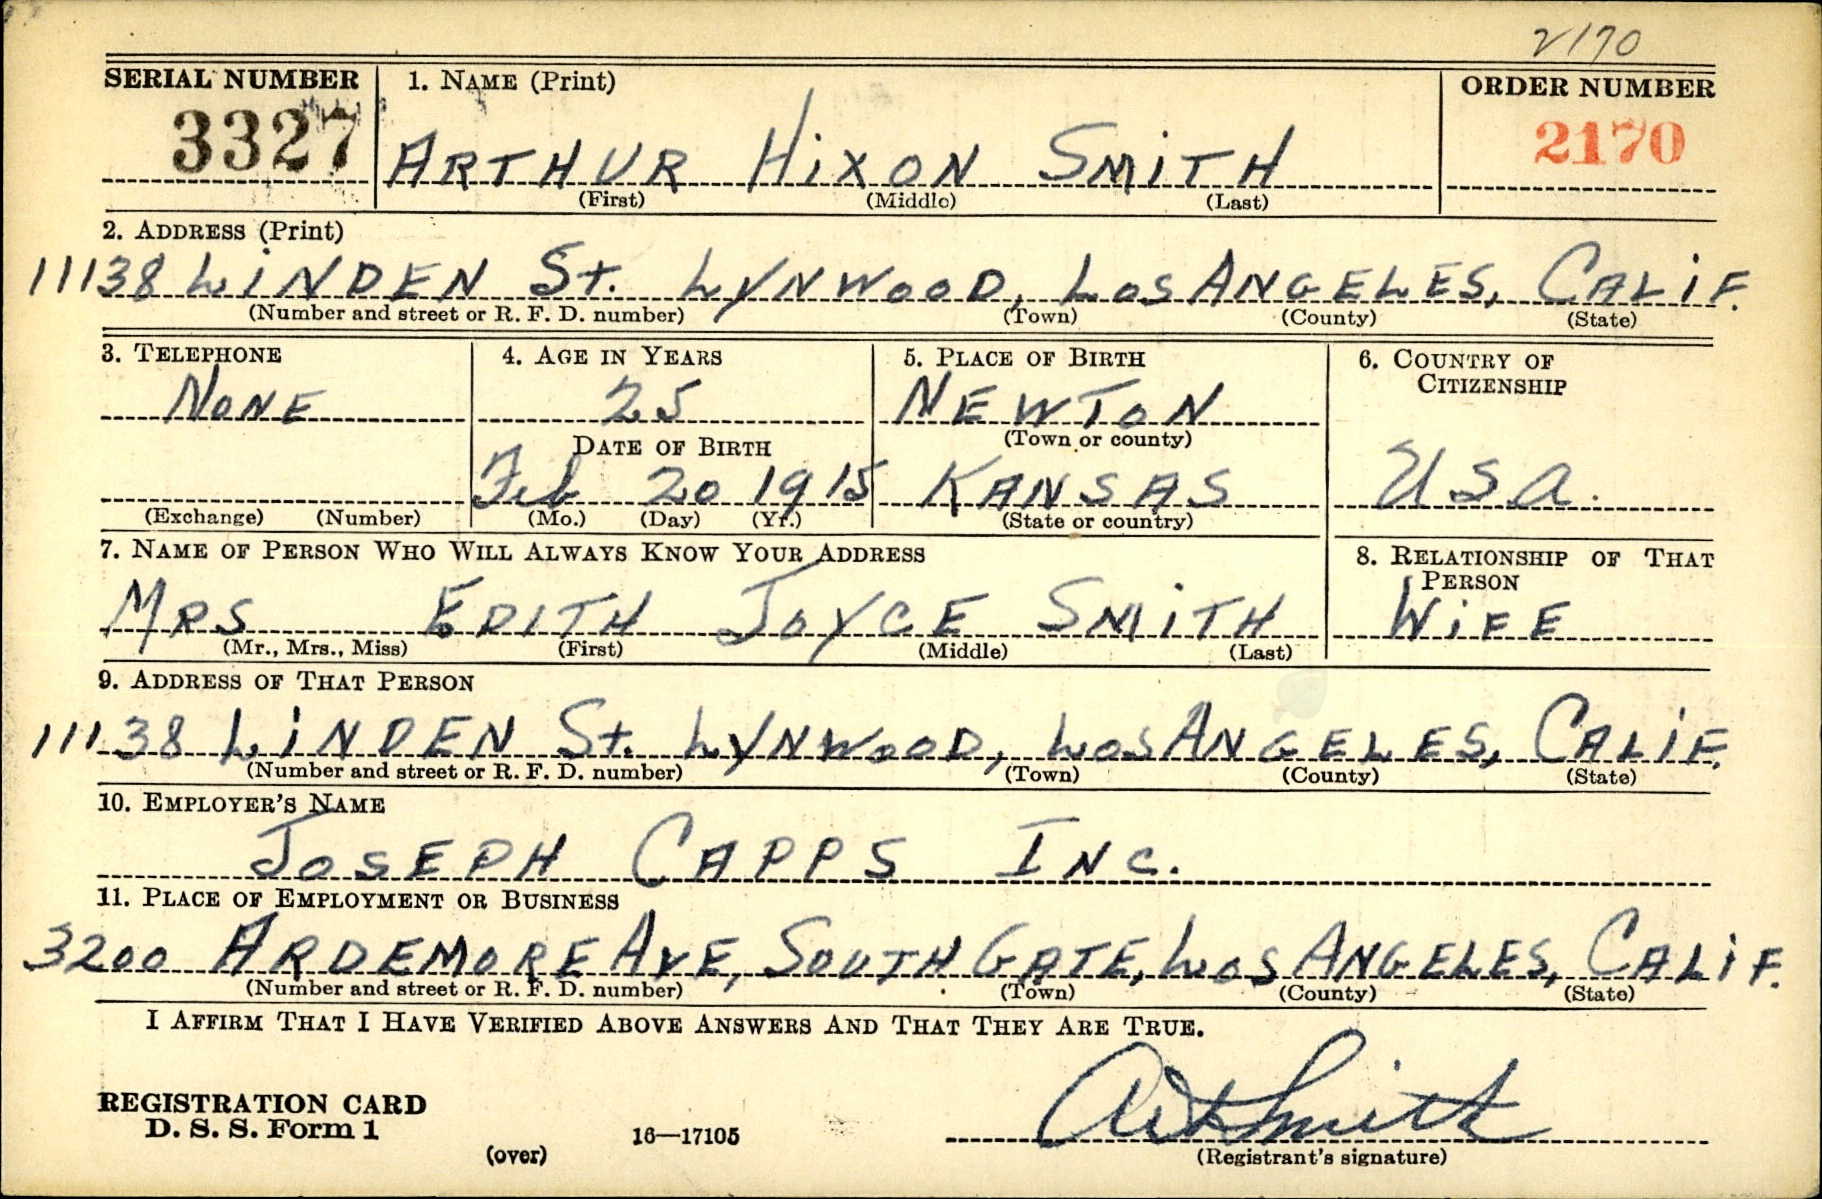 2170
SERIAL NUMBER 1. NAME (Print) ORDER NUMBER
3327 ARTHUR HIXON SMITH 2170
(First) (Middle) (Last)
2. ADDRESS (Print)
11138 LINDEN St. LYNWOOD, LOS ANGELES, CALIF.
(Number and street or R. F. D. number) (Town) (County) (State)
3. TELEPHONE 4. AGE IN YEARS 5. PLACE OF BIRTH 6. COUNTRY OF CITIZENSHIP
NONE 25 NEWTON
DATE OF BIRTH (Town or county)
Feb 20 1915 KANSAS USA.
(Exchange) (Number) (Mo.) (Day) (Yr.) (State or country)
7. NAME OF PERSON WHO WILL ALWAYS KNOW YOUR ADDRESS 8. RELATIONSHIP OF THAT PERSON
MRS EDITH JOYCE SMITH WIFE
(Mr., Mrs., Miss) (First) (Middle) (Last)
9. ADDRESS OF THAT PERSON
11138 LINDEN St. LYNWOOD, LOS ANGELES, CALIF.
(Number and street or R. F. D. number) (Town) (County) (State)
10. EMPLOYER'S NAME
JOSEPH CAPPS INC.
11. PLACE OF EMPLOYMENT OR BUSINESS
3200 ARDEMORE AVE, SOUTH GATE, LOS ANGELES, CALIF.
(Number and street or R. F. D. number) (Town) (County) (State)
I AFFIRM THAT I HAVE VERIFIED ABOVE ANSWERS AND THAT THEY ARE TRUE.
REGISTRATION CARD
D. S. S. Form 1
(over) 16—17105 Smith
(Registrant's signature)